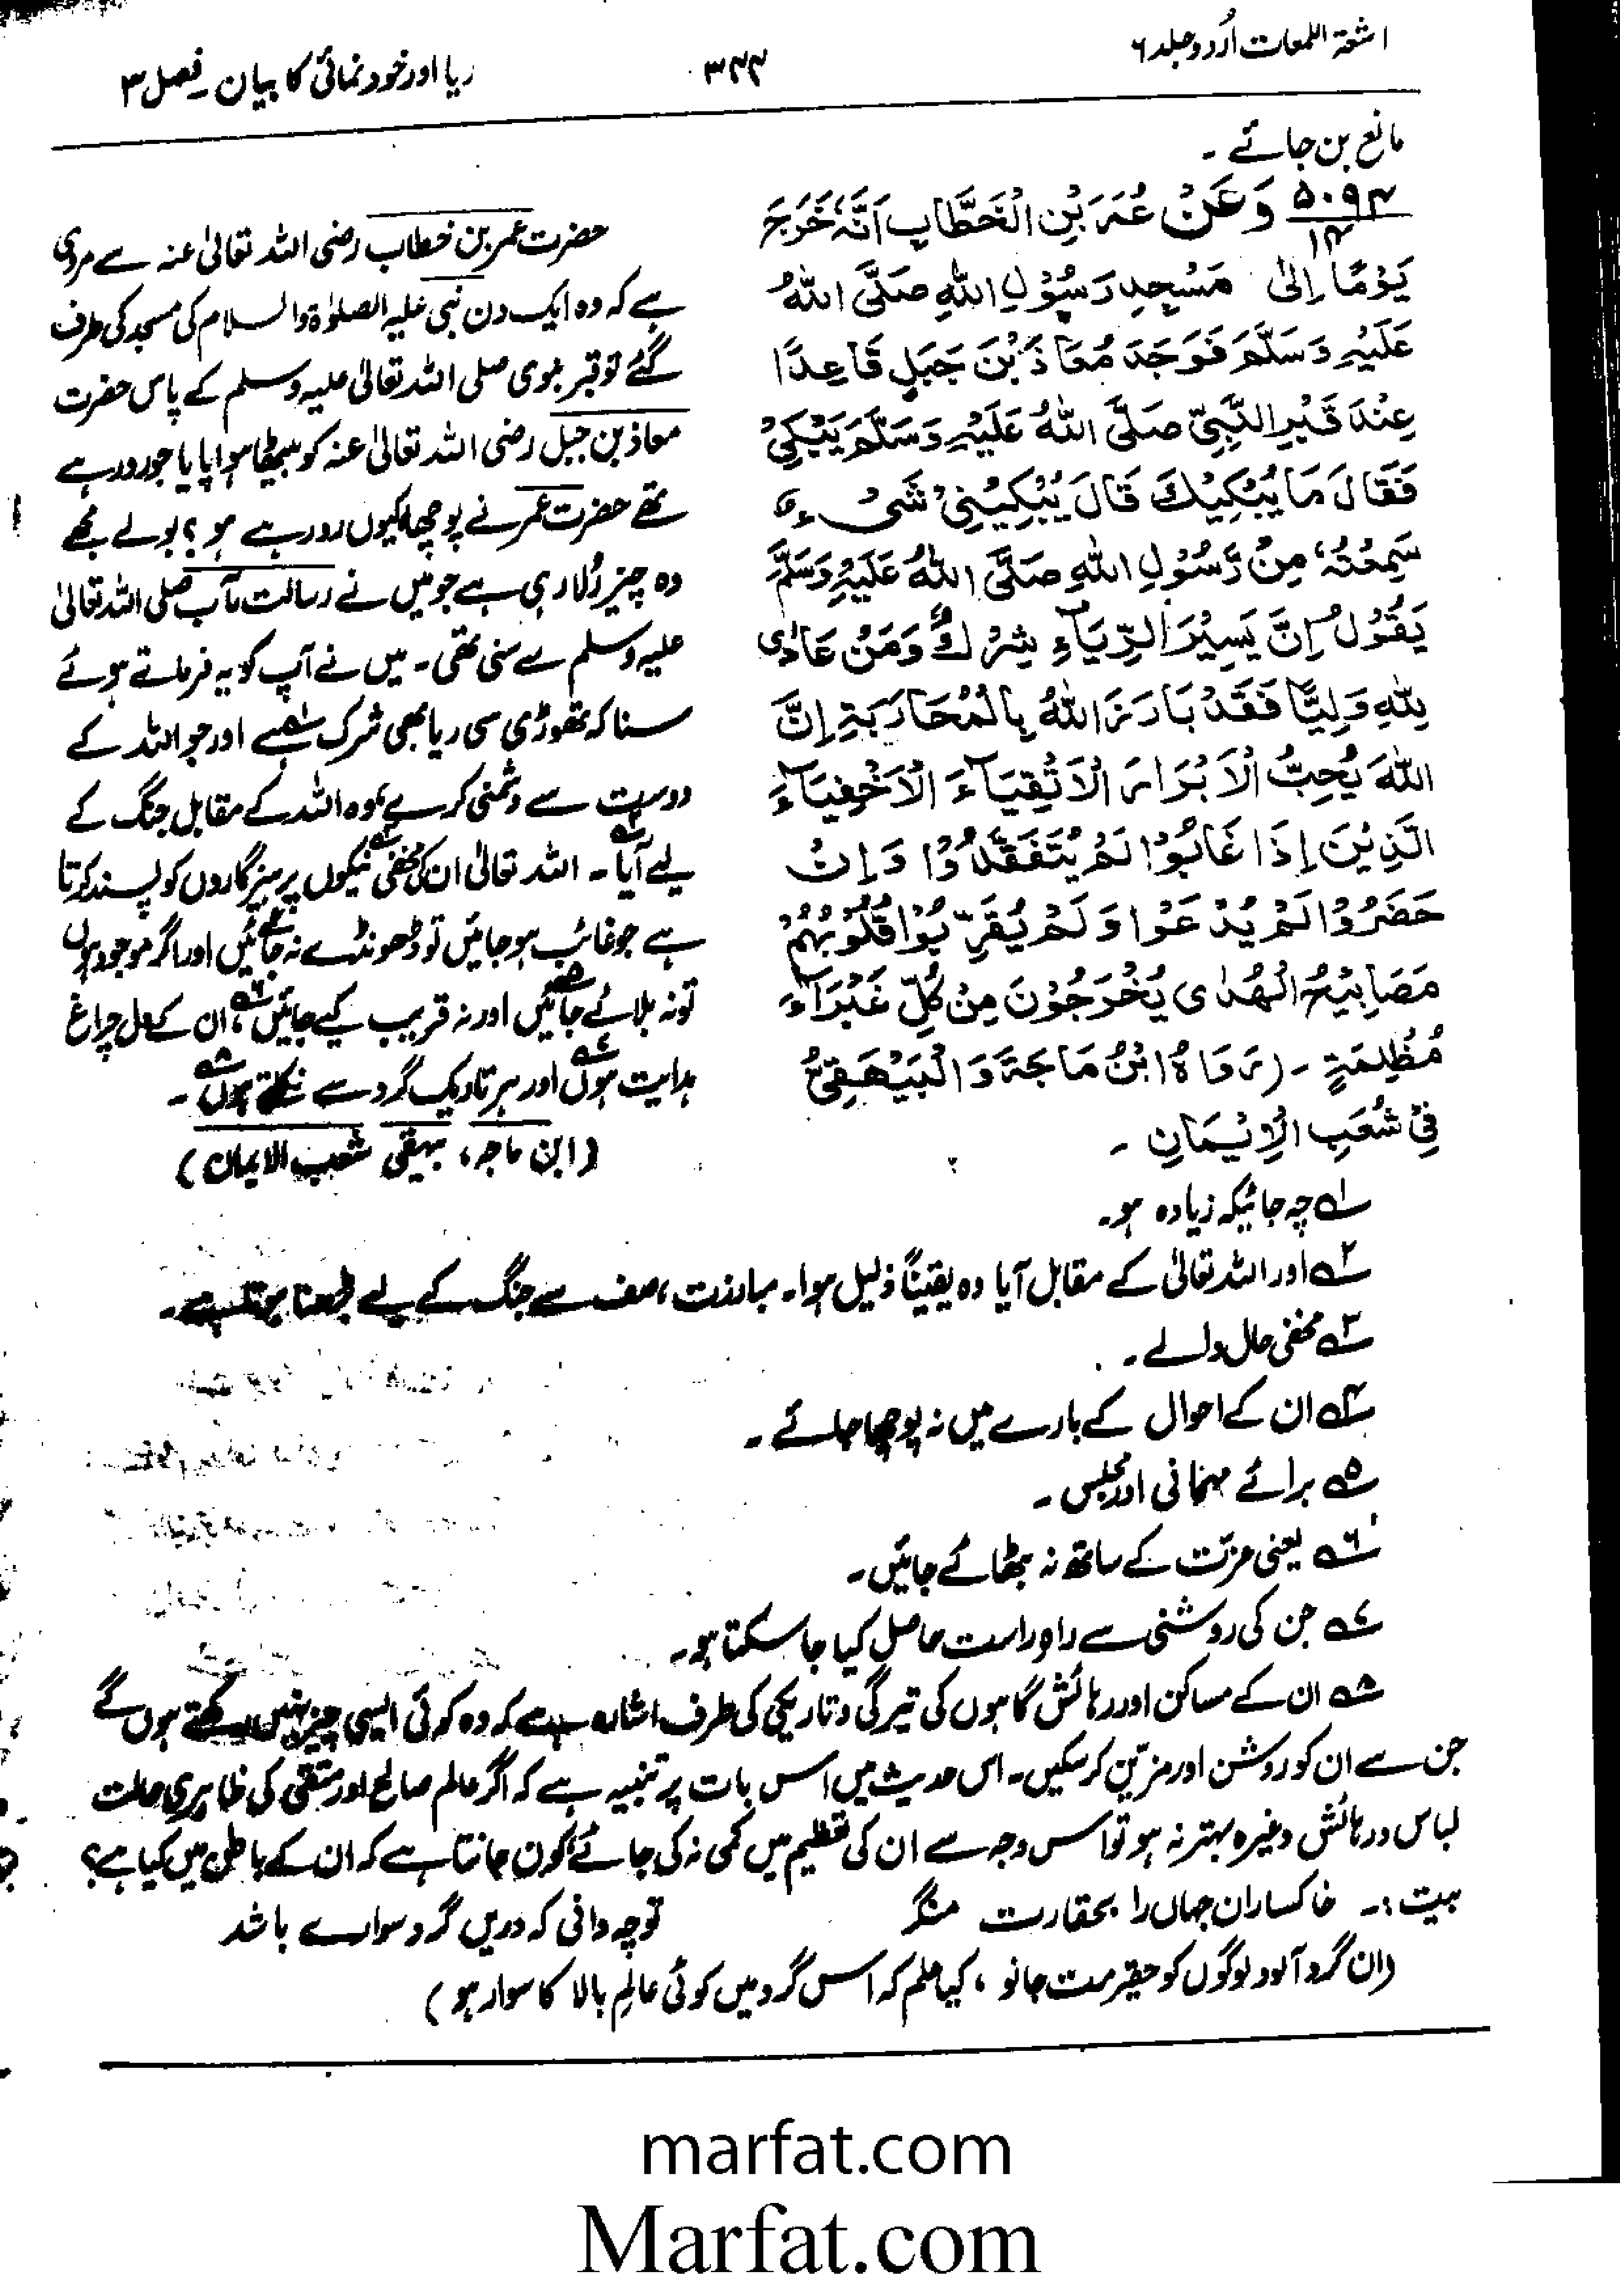 اشعۃ اللمعات اُردو جلد ۶
۳۴۴
ریا اور خود نمائی کا بیان۔ فصل ۳
مانع بن جائے۔
۵۰۹۴
۱۴
وَعَنْ عُمَرَ بْنِ الْخَطَّابِ اَنَّہٗ خَرَجَ
یَوْمًا اِلیٰ مَسْجِدِ رَسُوْلِ اللّٰہِ صَلَّی اللّٰہُ
عَلَیْہِ وَسَلَّمَ فَوَجَدَ مُعَاذَ بْنَ جَبَلٍ قَاعِدًا
عِنْدَ قَبْرِ النَّبِیِّ صَلَّی اللّٰہُ عَلَیْہِ وَسَلَّمَ یَبْکِیْ
فَقَالَ مَا یُبْکِیْكَ قَالَ یُبْکِیْنِیْ شَیْءٌ
سَمِعْتُہٗ مِنْ رَّسُوْلِ اللّٰہِ صَلَّی اللّٰہُ عَلَیْہِ وَسَلَّمَ
یَقُوْلُ اِنَّ یَسِیْرَ الرِّیَآءِ شِرْكٌ وَمَنْ عَادٰی
لِلّٰہِ وَلِیًّا فَقَدْ بَارَزَ اللّٰہَ بِالْمُحَارَبَۃِ اِنَّ
اللّٰہَ یُحِبُّ الْاَبْرَارَ الْاَتْقِیَآءَ الْاَخْفِیَآءَ
الَّذِیْنَ اِذَا غَابُوْا لَمْ یُتَفَقَّدُوْا وَاِنْ
حَضَرُوْا لَمْ یُدْعَوْا وَلَمْ یُقَرَّبُوْا قُلُوْبُہُمْ
مَصَابِیْحُ الْہُدٰی یَخْرُجُوْنَ مِنْ کُلِّ غَبْرَآءَ
مُظْلِمَۃٍ۔ (رَوَاہُ ابْنُ مَاجَۃَ وَالْبَیْہَقِیُّ
فِیْ شُعَبِ الْاِیْمَانِ۔
حضرت عمر بن خطاب رضی اللہ تعالیٰ عنہ سے مروی
ہے کہ وہ ایک دن نبی علیہ الصلوٰۃ والسلام کی مسجد کی طرف
گئے تو قبر نبوی صلی اللہ تعالیٰ علیہ وسلم کے پاس حضرت
معاذ بن جبل رضی اللہ تعالیٰ عنہ کو بیٹھا ہوا پایا جو رو رہے
تھے حضرت عمر نے پوچھا کیوں رو رہے ہو؟ بولے مجھے
وہ چیز رُلا رہی ہے جو میں نے رسالت مآب صلی اللہ تعالیٰ
علیہ وسلم سے سنی تھی۔ میں نے آپ کو یہ فرماتے ہوئے
سنا کہ تھوڑی سی ریا بھی شرک ہے۱ اور جو اللہ کے
دوست سے دشمنی کرے وہ اللہ کے مقابل جنگ کے
لیے آیا۲۔ اللہ تعالیٰ ان کی مخفی۳ نیکوں پرہیزگاروں کو پسند کرتا
ہے جو غائب ہو جائیں تو ڈھونڈے نہ جائیں۴ اور اگر موجود ہوں
تو نہ بلائے جائیں۵ اور نہ قریب کیے جائیں۶، ان کے دل چراغ
ہدایت ہوں۷ اور ہر تاریک گرد سے نکلتے ہوں۸۔
(ابن ماجہ، بیہقی شعب الایمان)
۱ چہ جائیکہ زیادہ ہو۔
۲ اور اللہ تعالیٰ کے مقابل آیا وہ یقیناً ذلیل ہوا۔ مبارزت، صف سے جنگ کے لیے بڑھنا ہوتا ہے۔
۳ مخفی حال والے۔
۴ ان کے احوال کے بارے میں نہ پوچھا جائے۔
۵ برائے مہمانی اور مجلس۔
۶ یعنی عزّت کے ساتھ نہ بٹھائے جائیں۔
۷ جن کی روشنی سے راہ راست حاصل کیا جا سکتا ہو۔
۸ ان کے مساکن اور رہائش گاہوں کی تیرگی و تاریکی کی طرف اشارہ ہے کہ وہ کوئی ایسی چیز نہیں رکھتے ہوں گے
جن سے ان کو روشن اور مزیّن کر سکیں۔ اس حدیث میں اس بات پر تنبیہ ہے کہ اگر عالم صالح اور متقی کی ظاہری حالت
لباس و رہائش وغیرہ بہتر نہ ہو تو اس وجہ سے ان کی تعظیم میں کمی نہ کی جائے کون جانتا ہے کہ ان کے باطن میں کیا ہے؟
بیت:۔ خاکساران جہاں را بحقارت منگر
تو چہ دانی کہ دریں گرد سوارے باشد
(ان گرد آلود لوگوں کو حقیر مت جانو، کیا علم کہ اس گرد میں کوئی عالم بالا کا سوار ہو)
marfat.com
Marfat.com